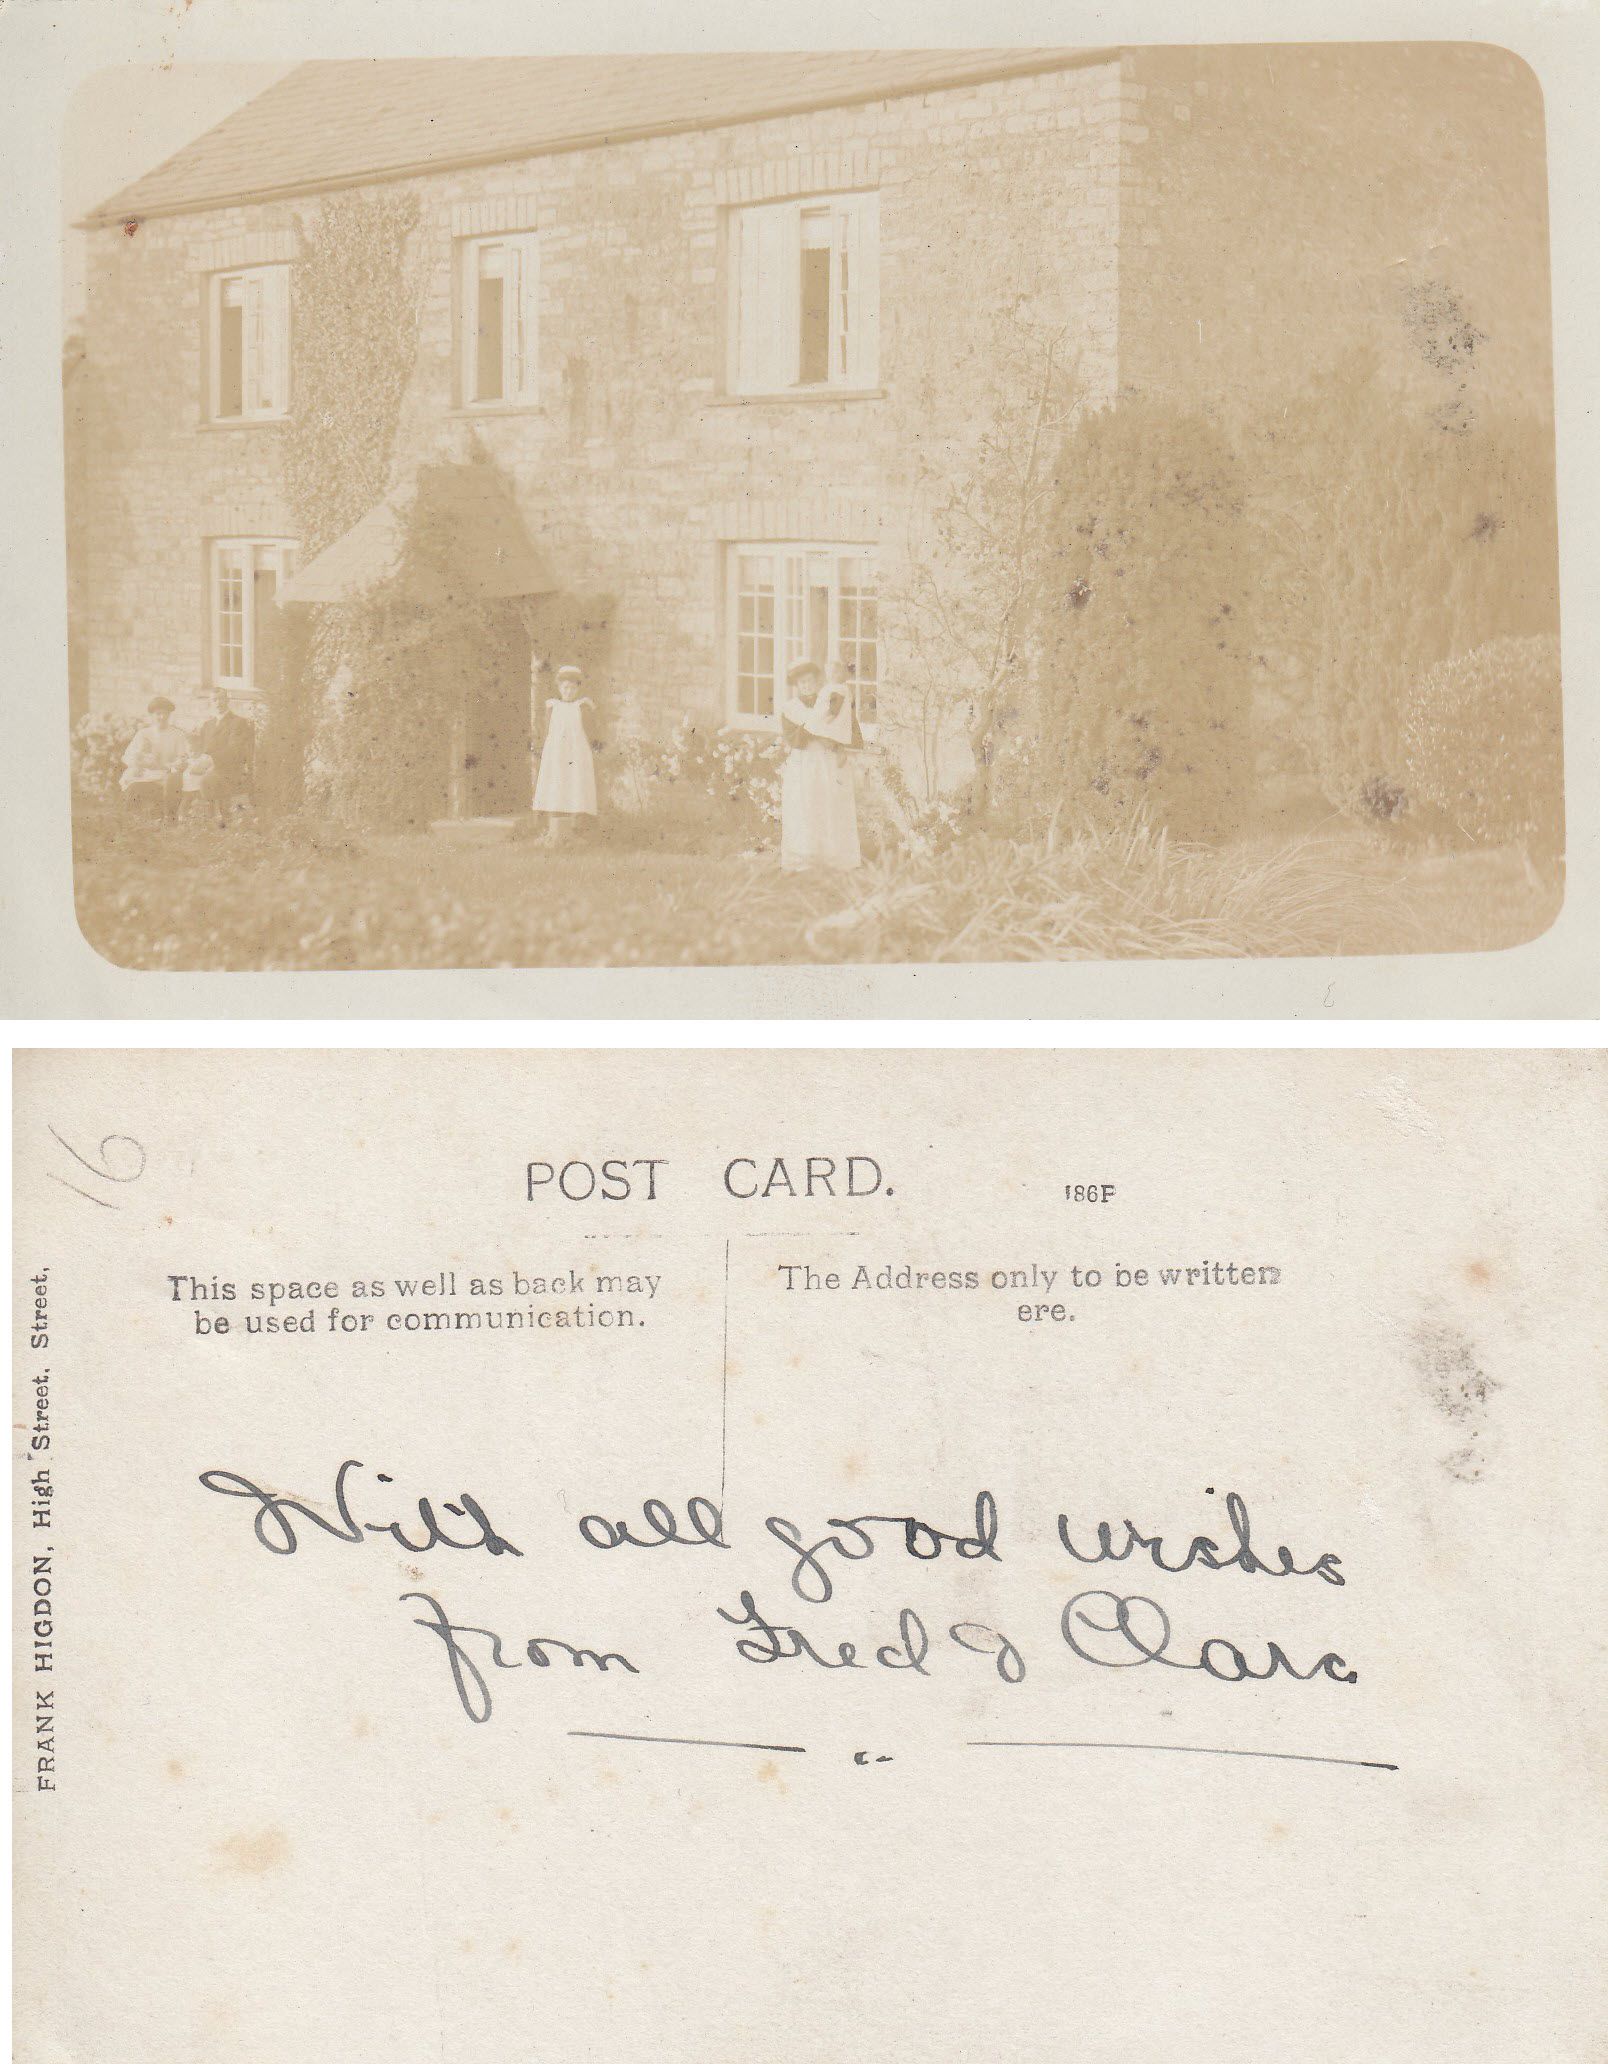 16
POST CARD.
186P
This space as well as back may
be used for communication.
The Address only to be written
ere.
FRANK HIGDON, High Street. Street,
With all good wishes
from Fred & Clara